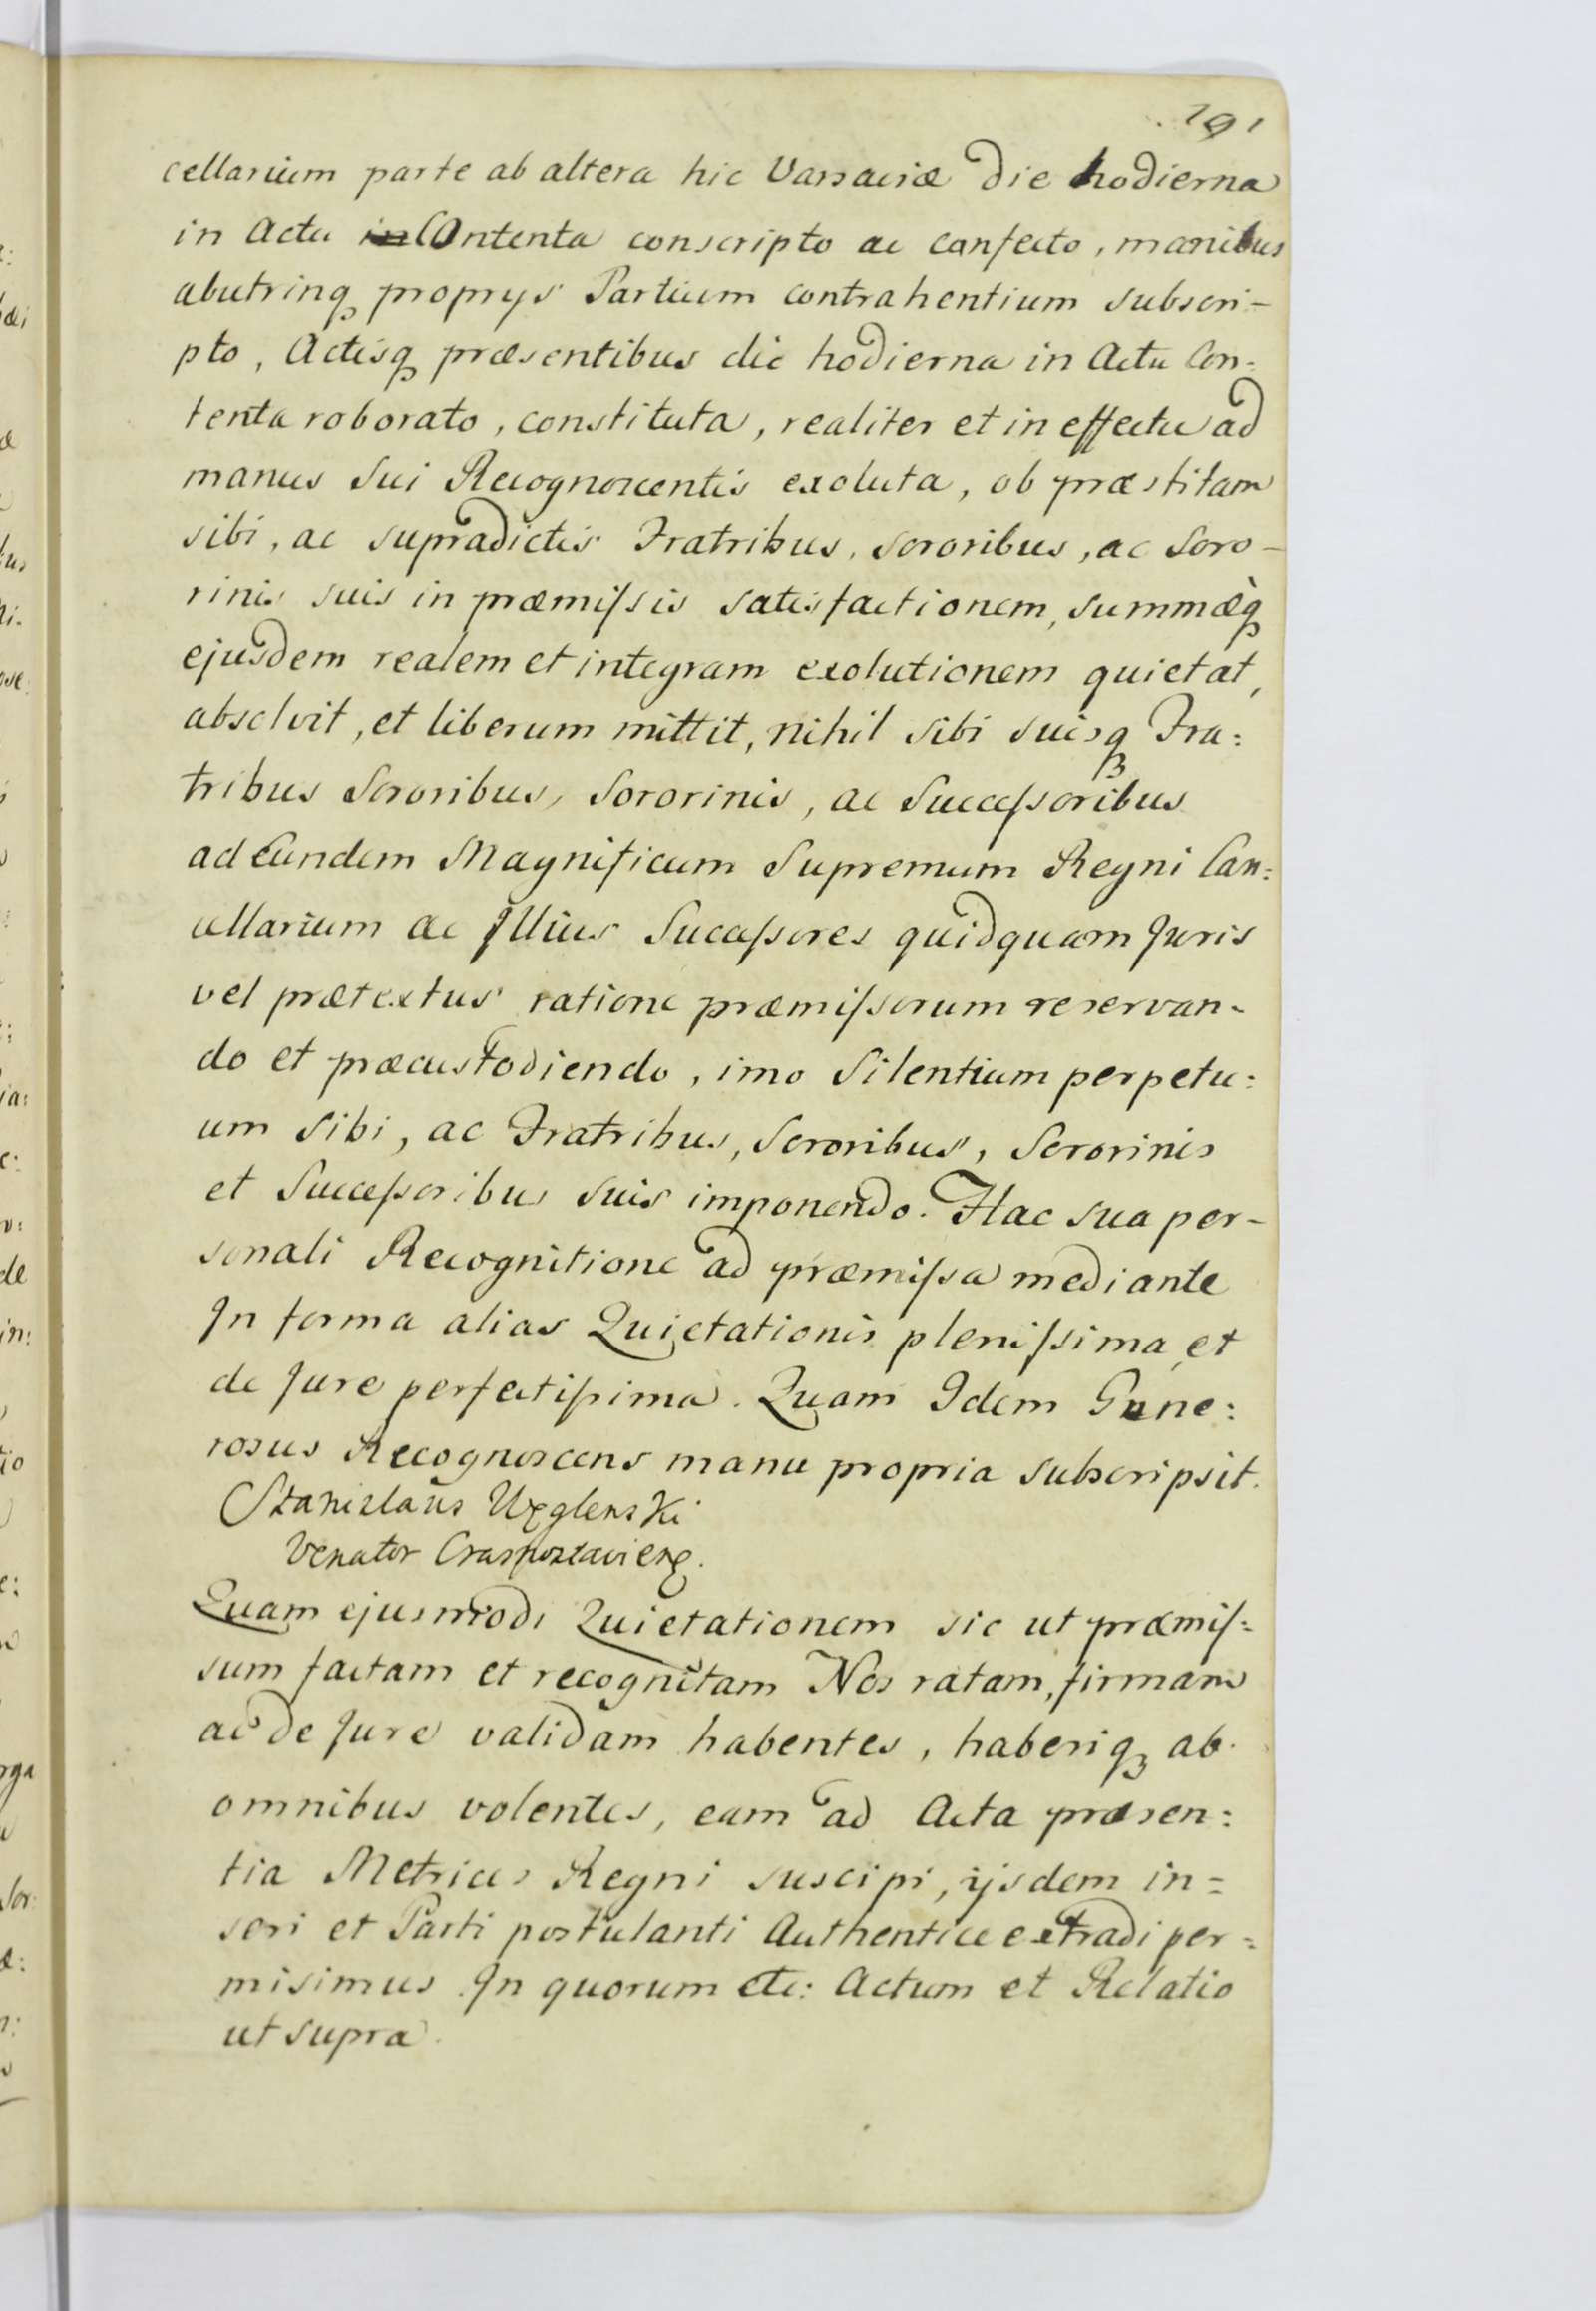 191
cellarium parte ab altera hic Varsaviæ Die hodierna
in Actu Contenta conscripto ac confecto, manibus
abutrinq proprys Partium contrahentium subscri-
pto, Actisq præsentibus die hodierna in Actu Con:
tenta roborato, constituta, realiter et in effectu ad
manus Sui Recognoscentis exoluta, ob præstitam
sibi, ac supradictis Fratribus, Sororibus, ac Soro-
rinis suis in præmissis satisfactionem, summæq
ejusdem realem et integram exolutionem quietat,
absolvit, et liberum mittit, nihil sibi suisq Fra:
tribus Sororibus, Sororinis, ac Successoribus
ad Eundem Magnificum Supremum Regni Can:
cellarium ac Illius Successores quidquam Juris
vel prætextus ratione præmissorum reservan-
do et præcustodiendo, imo Silentium perpetu:
um Sibi, ac Fratribus, Sororibus, Sororinis
et Successoribus suis imponendo. Hac sua per-
sonali Recognitione ad præmissa mediante
In forma alias Quietationis plenissima et
de Jure perfectissima. Quam Idem Gene:
rosus Recognoscens manu propria subscripsit.
Stanislaus Węglenski
Venator Crasnostavieng.
Quam ejusmodi Quietationem sic ut præmis:
sum factam et recognitam Nos ratam, firmam
ac de Jure validam habentes, haberiq ab
omnibus volentes, eam ad Acta præsen:
tia Metrices Regni suscipi, ijsdem in=
seri et Parti postulanti Authentice extradi per=
misimus In quorum etc: Actum et Relatio
ut supra.